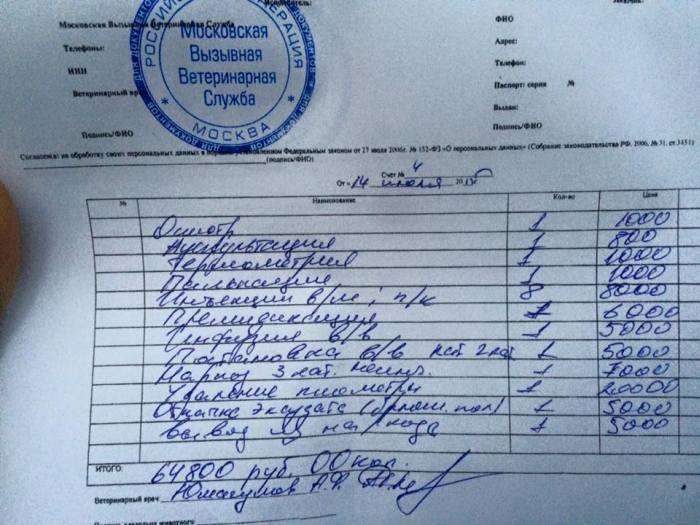 Исполнитель:
Заказчик:
Московская Вызывная Ветеринарная Служба
Телефоны:
ИНН
Ветеринарный вр
Подпись/ФИО
ФИО
Адрес:
Телефон:
Паспорт: серия №
Выдан:
Подпись/ФИО
ДЛЯ ДОКУМЕНТОВ
РОССИЙСКАЯ ФЕДЕРАЦИЯ
Московская
Вызывная
Ветеринарная
Служба
* МОСКВА *
Согласен на обработку своих персональных данных в порядке, установленном Федеральным законом от 27 июля 2006г. № 152-ФЗ «О персональных данных» (Собрание законодательства РФ, 2006, № 31, ст.3451)
(подпись/ФИО)
Счет № 4
От « 14 июля 20
№ Наименование Кол-во Цена
Осмотр 1 1000
Аускультация 1 800
Термометрия 1 1000
Пальпация 1 1000
Инъекции в/м; п/к 8 8000
Премидикация 1 6000
Инфузия в/в 1 5000
Постановка в/в кат 1 5000
Наркоз 3 кат. 1 7000
Удаление пиометры 1 20000
Откачка экссудата (брюшн. пол) 1 5000
Вывод из наркоза 1 5000
ИТОГО: 64800 руб. 00 коп.
Ветеринарный врач